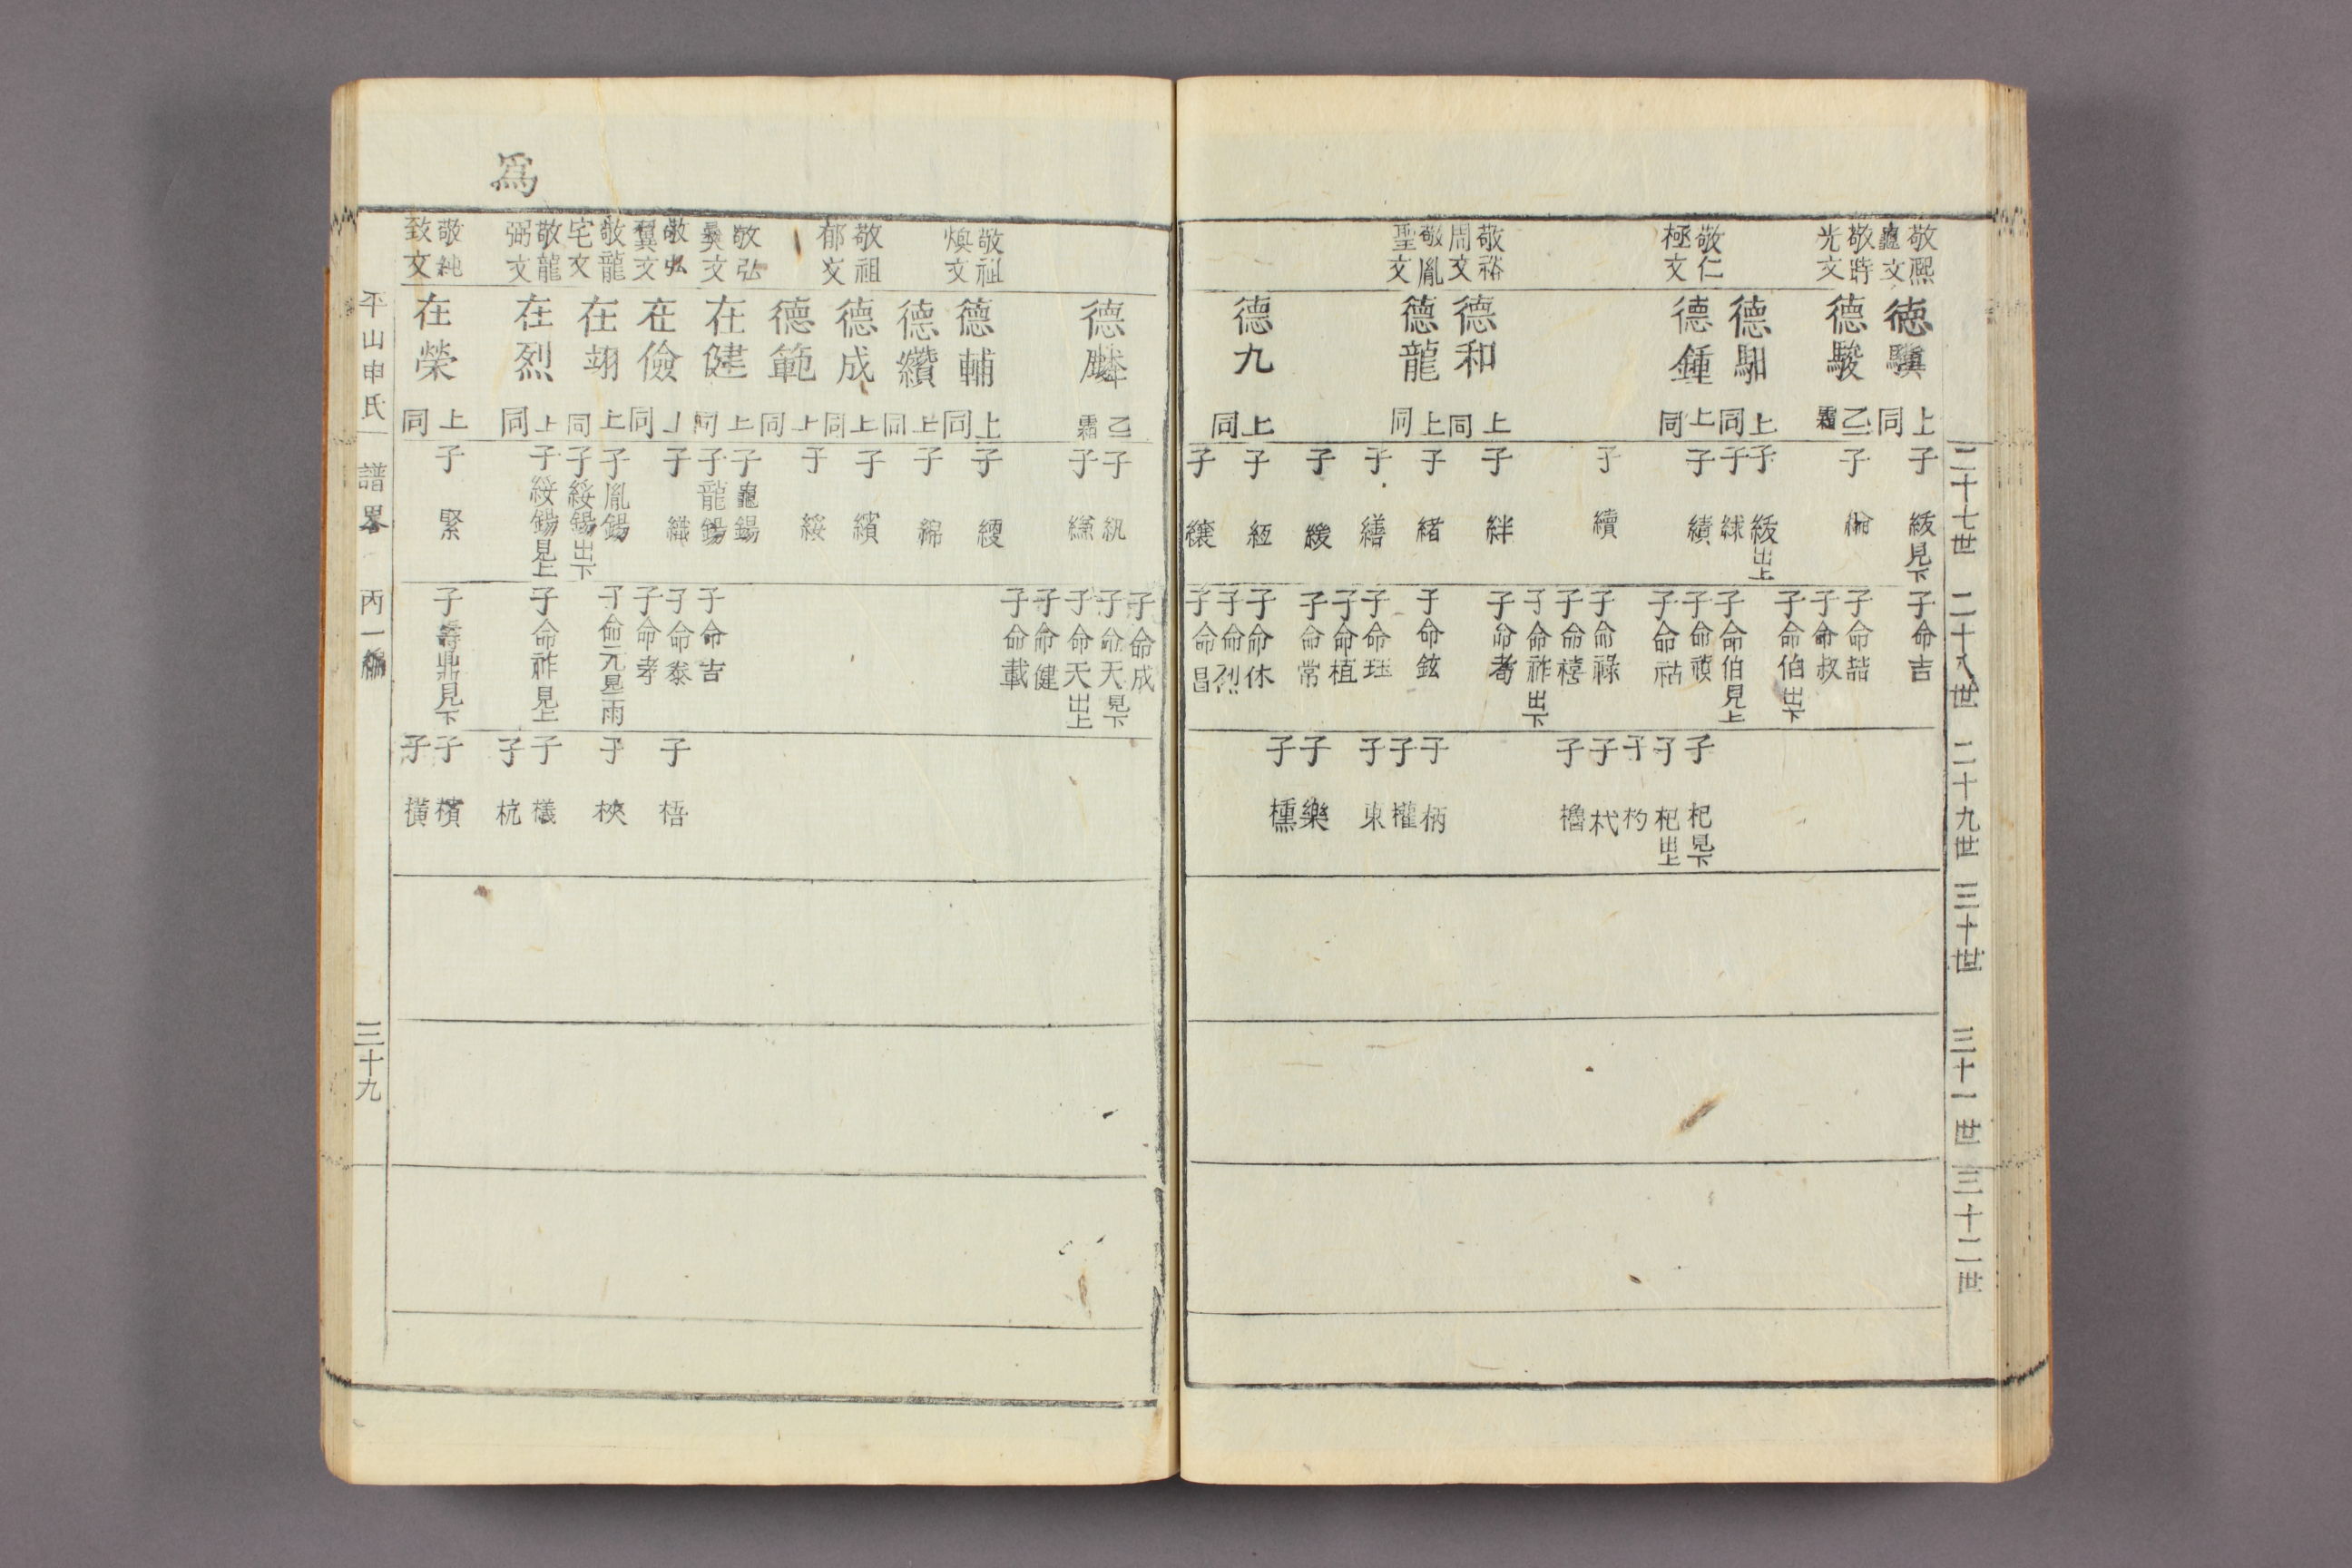 二十七世
二十八世
二十九世
三十世
三十一世
三十二世
敬熙
文
敬時
光文
敬仁
極文
敬裕
周文
敬胤
聖文
德驥
上同
德駿
乙霜
德馹
上同
德鍾
上同
德和
上同
德龍
上同
德九
上同
子 綏見下
子 綸
子 綏出上
子 絿
子 績
子 續
子 絆
子 緒
子 繕
子 緩
子 絚
子 纕
子命吉
子命喆
子命叔
子命伯出下
子命伯見上
子命禎
子命祜
子命祿
子命禧
子命祚出下
子命耉
子命鉉
子命珏
子命植
子命常
子命休
子命烈
子命昌
子 杞見下
子 杞出上
子 杓
子 杙
子 櫓
子 柄
子 權
子 東
子 樂
子 櫄
爲
敬祖
煥文
敬祖
郁文
敬弘
彛文
敬弘
翼文
敬龍
宅文
敬龍
弼文
敬純
致文
德麟
乙霜
德輔
上同
德纘
上同
德成
上同
德範
上同
在健
上同
在儉
上同
在翊
上同
在烈
上同
在榮
上同
子 紈
子
子 綆
子 綿
子 繽
子 綏
子龜錫
子龍錫
子 纖
子胤錫
子綏錫出下
子綏錫見上
子 緊
子命成
子命天見下
子命天出上
子命健
子命載
子命吉
子命泰
子命孝
子命元昱雨
子命祚見上
子壽鼎見下
子 梧
子 梜
子 檥
子 杭
子 檳
子 橫
平山申氏 譜畧 丙一編 三十九